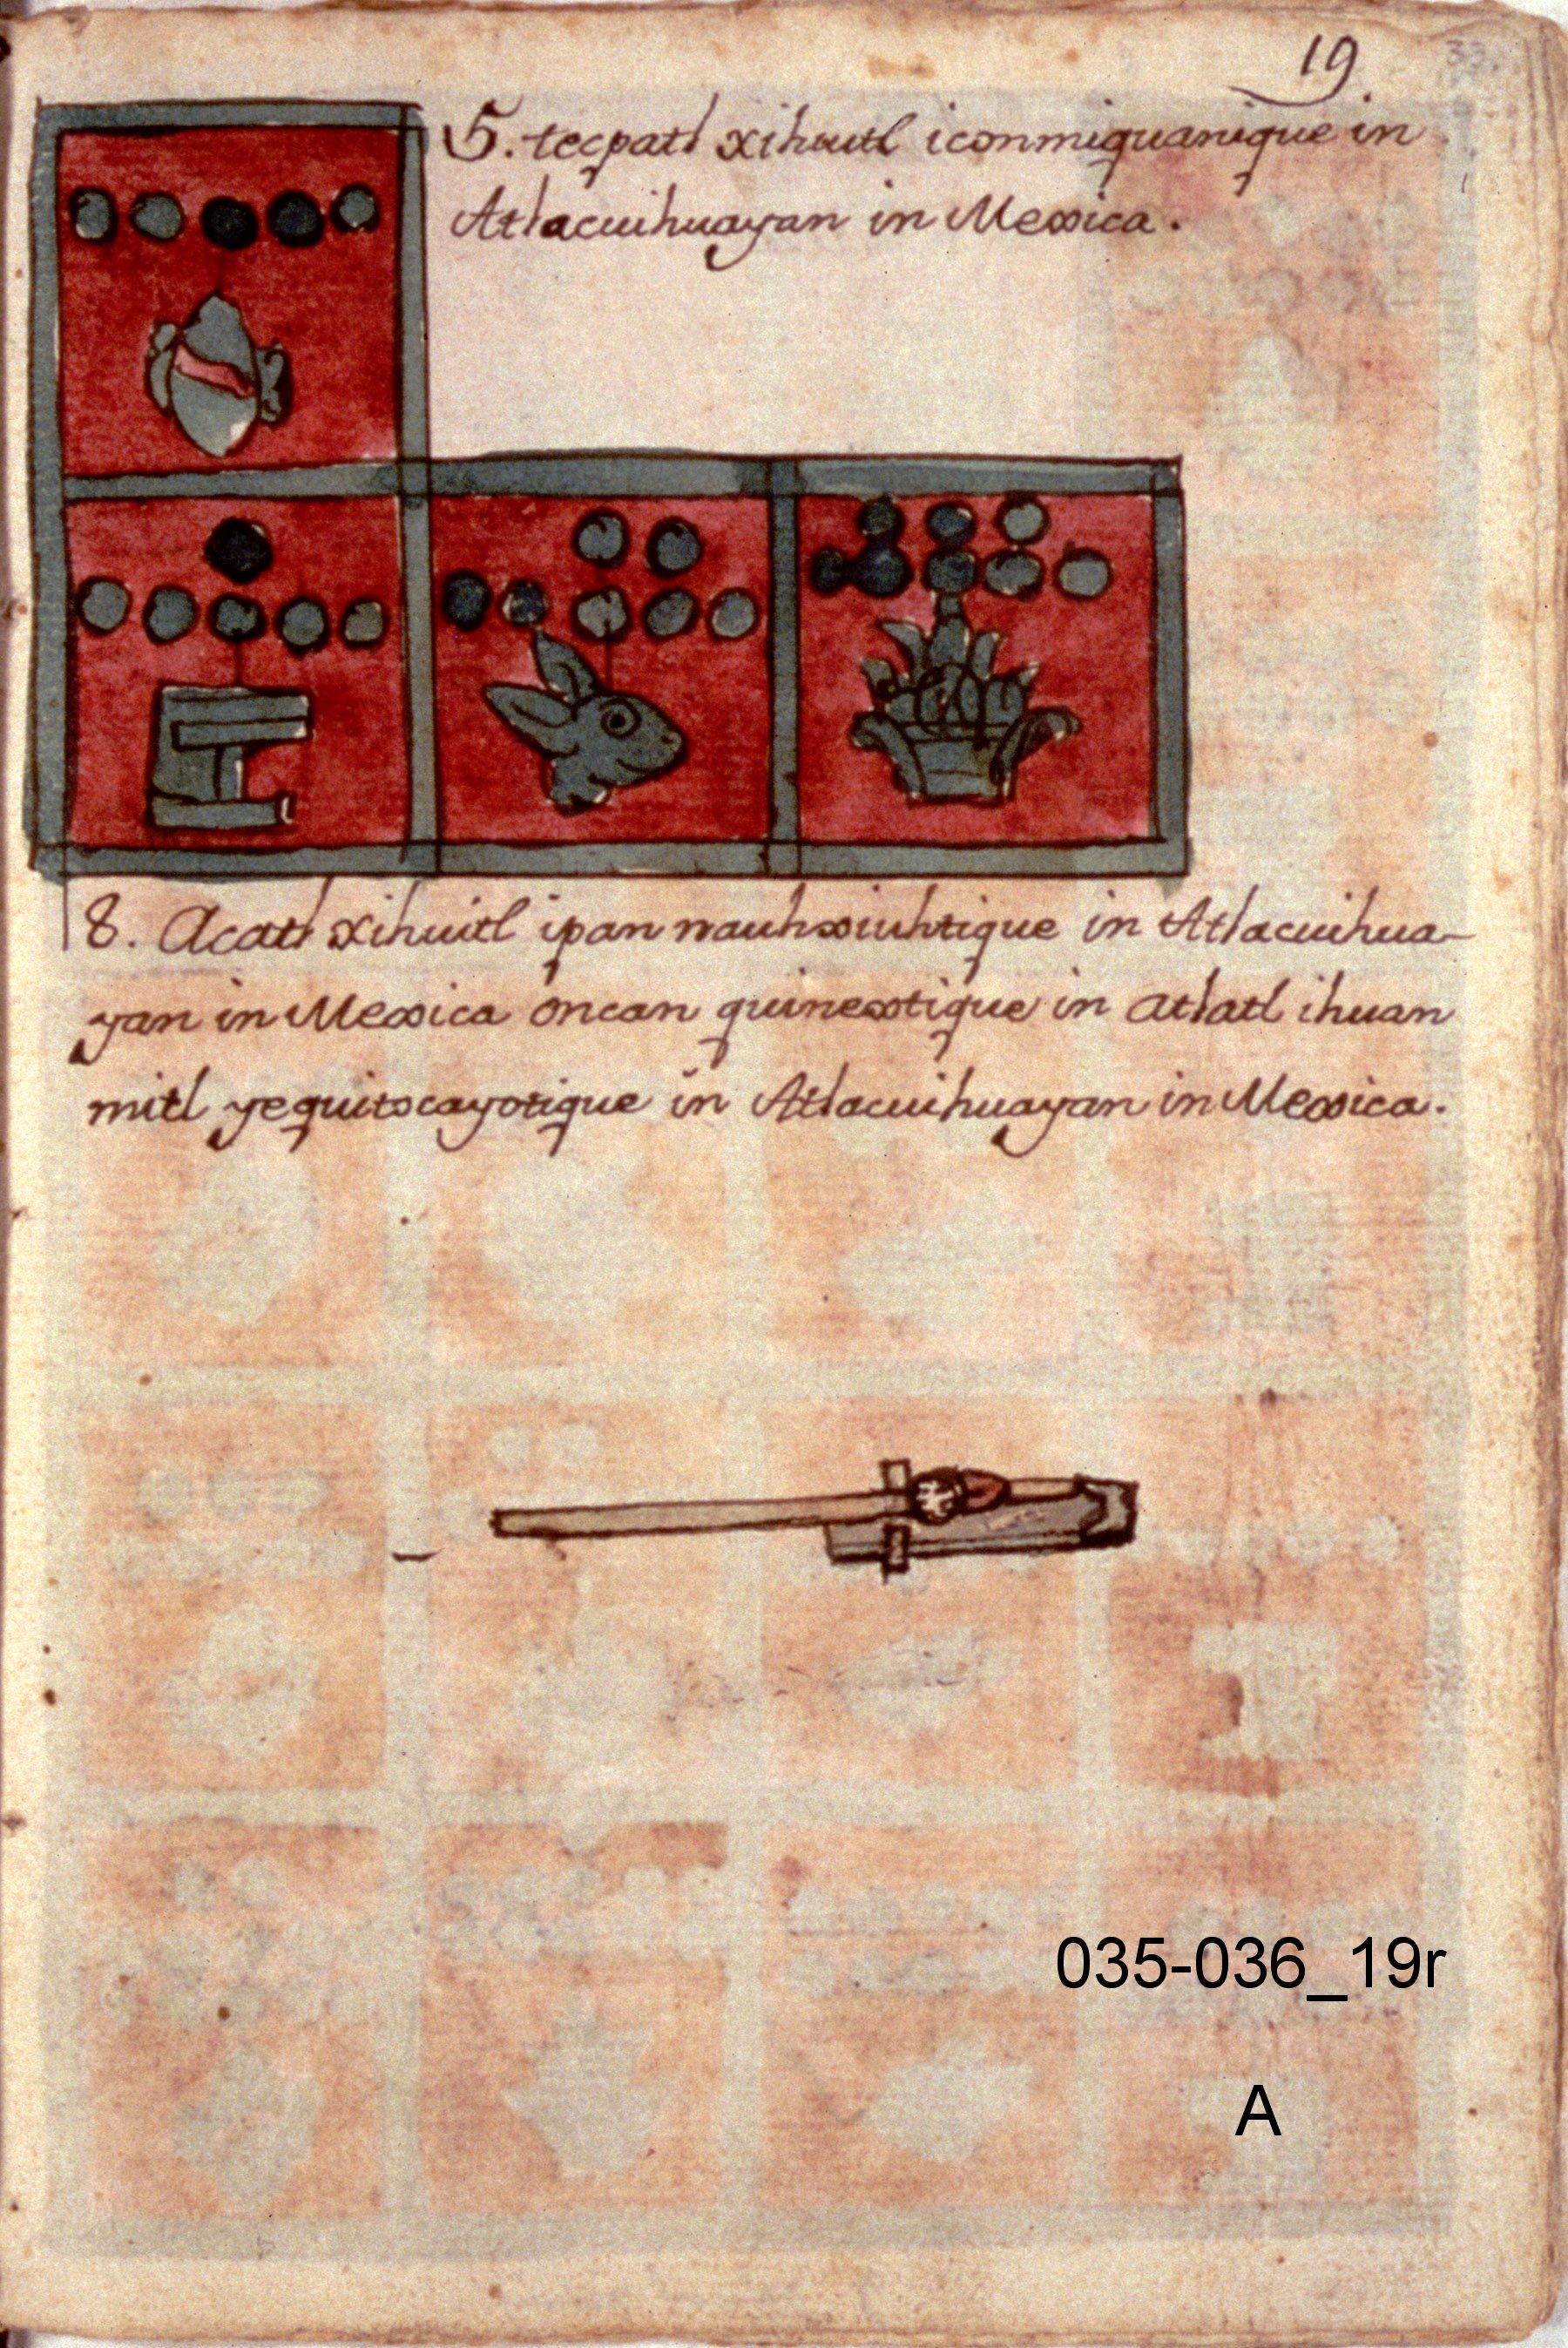 19
33.
5. tecpatl xihuitl iconmiquanique in
Atlacuihuayan in Mexica.
8. Acatl xihuitl ipan nauhxiuhtique in Atlacuihua-
yan in Mexica oncan quinextique in atlatl ihuan
mitl yequitocayotique in Atlacuihuayan in Mexica.
035-036_19r
A